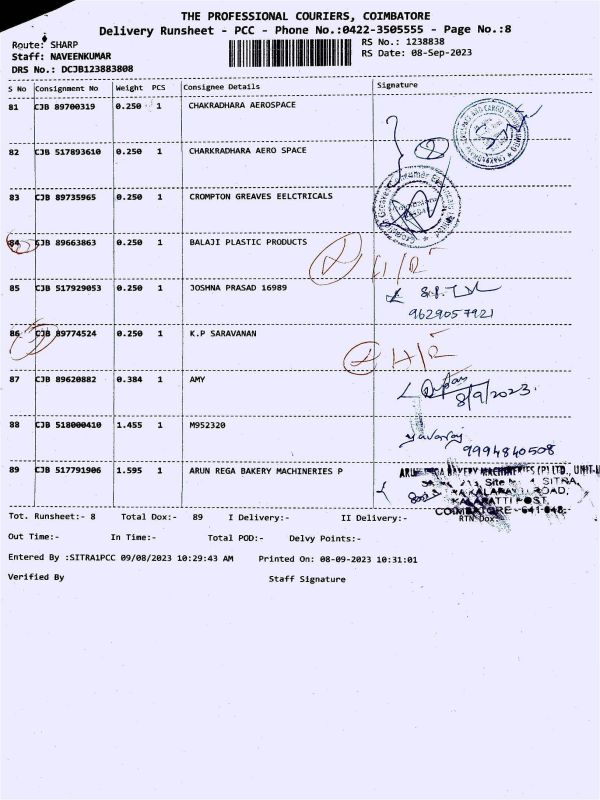 THE PROFESSIONAL COURIERS, COIMBATORE
Delivery Runsheet - PCC - Phone No.:0422-3505555 - Page No.:8
Route: SHARP
RS No.: 1238838
Staff: NAVEENKUMAR
RS Date: 08-Sep-2023
DRS No.: DCJB123883808
S No Consignment No Weight PCS Consignee Details Signature
81 CJB 89700319 0.250 1 CHAKRADHARA AEROSPACE
82 CJB 517893610 0.250 1 CHARKRADHARA AERO SPACE
2
83 CJB 89735965 0.250 1 CROMPTON GREAVES EELCTRICALS
84 CJB 89663863 0.250 1 BALAJI PLASTIC PRODUCTS
85 CJB 517929053 0.250 1 JOSHNA PRASAD 16989
9629057921
86 CJB 89774524 0.250 1 K.P SARAVANAN
87 CJB 89620882 0.384 1 AMY
8/9/2023.
88 CJB 518000410 1.455 1 M952320
9994840508
89 CJB 517791906 1.595 1 ARUN REGA BAKERY MACHINERIES P
BAKERY MACHINERIES (P) LTD., UNIT-
Site SITRA,
ROAD,
KALAPATTI POST,
COIMBATORE - 641 048.
Tot. Runsheet:- 8 Total Dox:- 89 I Delivery:- II Delivery:- RTN Dox:-
Out Time:- In Time:- Total POD:- Delvy Points:-
Entered By :SITRA1PCC 09/08/2023 10:29:43 AM Printed On: 08-09-2023 10:31:01
Verified By Staff Signature